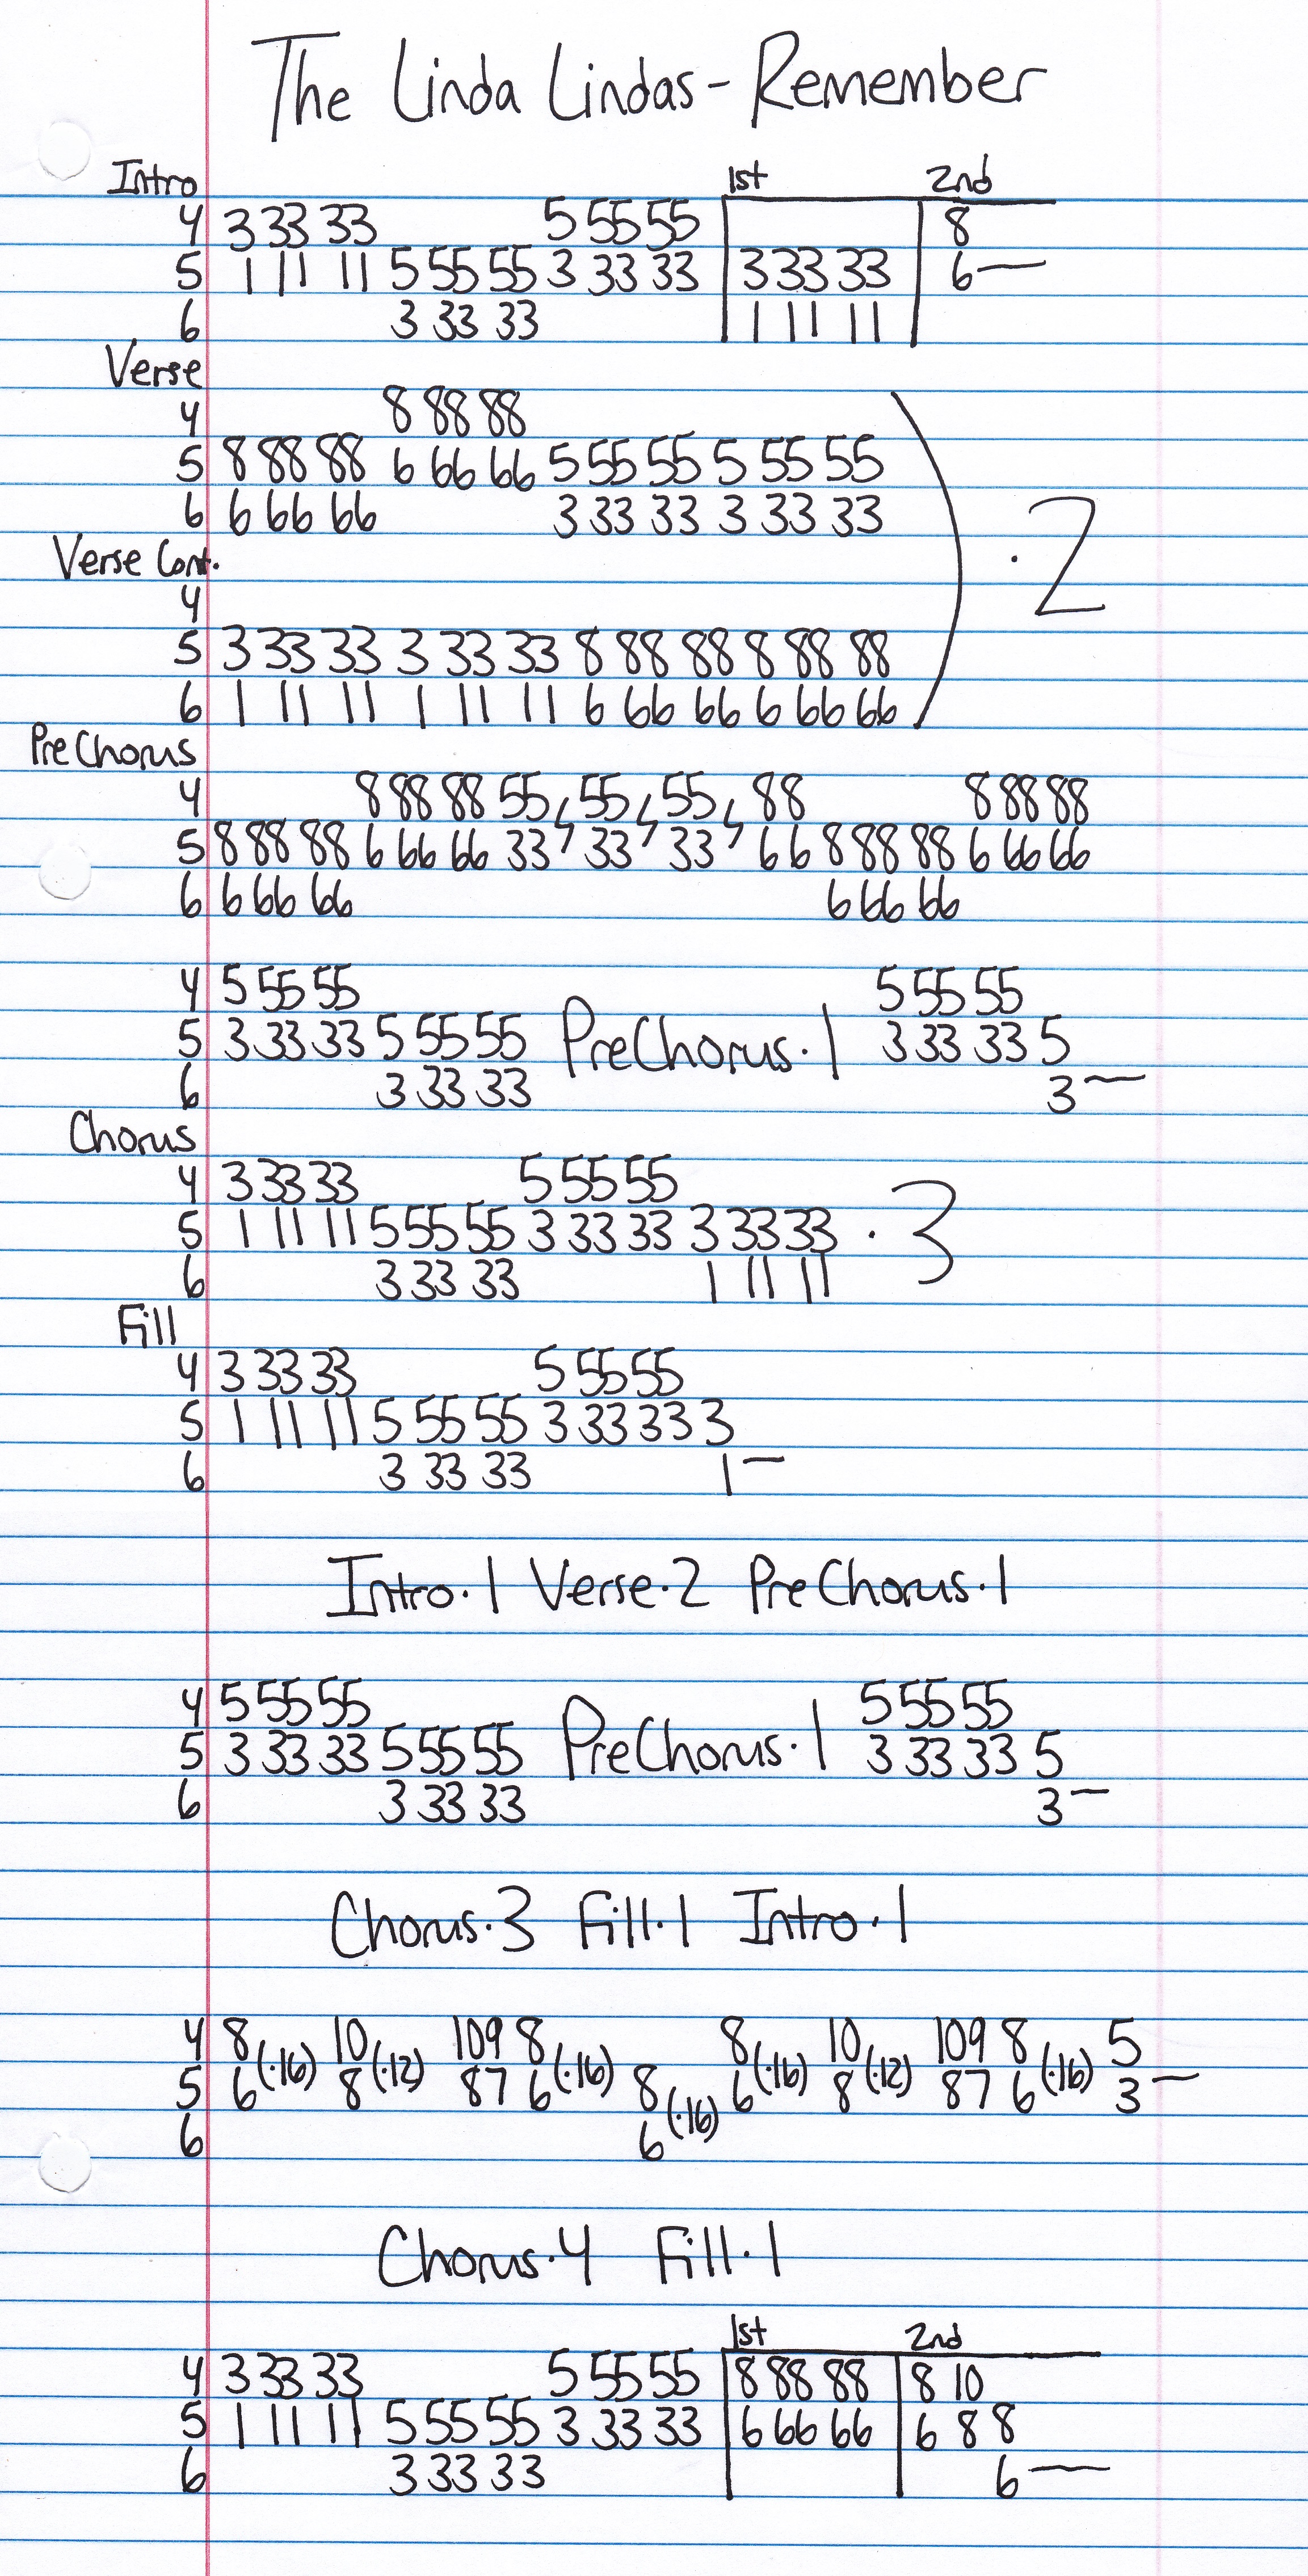 The Linda Lindas - Remember
Intro 1st 2nd
4 3 33 33 5 55 55 8
5 1 11 11 5 55 55 3 33 33 3 33 33 6—
6 3 33 33 1 11 11
Verse
4 8 88 88
5 8 88 88 6 66 66 5 55 55 5 55 55
6 6 66 66 3 33 33 3 33 33
·2
Verse Cont.
4
5 3 33 33 3 33 33 8 88 88 8 88 88
6 1 11 11 1 11 11 6 66 66 6 66 66
PreChorus
4 8 88 88 55 55 55 88 8 88 88
5 8 88 88 6 66 66 33 33 33 66 8 88 88 6 66 66
6 6 66 66 6 66 66
4 5 55 55 5 55 55
5 3 33 33 5 55 55 PreChorus·1 3 33 33 5
6 3 33 33 3—
Chorus
4 3 33 33 5 55 55
5 1 11 11 5 55 55 3 33 33 3 33 33 ·3
6 3 33 33 1 11 11
Fill
4 3 33 33 5 55 55
5 1 11 11 5 55 55 3 33 33 3
6 3 33 33 1—
Intro·1 Verse·2 PreChorus·1
4 5 55 55 5 55 55
5 3 33 33 5 55 55 PreChorus·1 3 33 33 5
6 3 33 33 3—
Chorus·3 Fill·1 Intro·1
4 8 (·16) 10 (·12) 109 8 (·16) 8 (·16) 10 (·12) 109 8 (·16) 5
5 6 8 87 6 8 (·16) 6 8 87 6 3—
6 6
Chorus·4 Fill·1
1st 2nd
4 3 33 33 5 55 55 8 88 88 8 10
5 1 11 11 5 55 55 3 33 33 6 66 66 6 8 8
6 3 33 33 6—